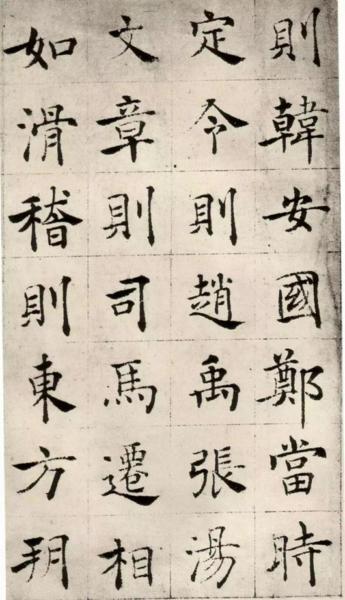 則韓安國鄭當時
定令則趙禹張湯
文章則司馬遷相
如滑稽則東方玥